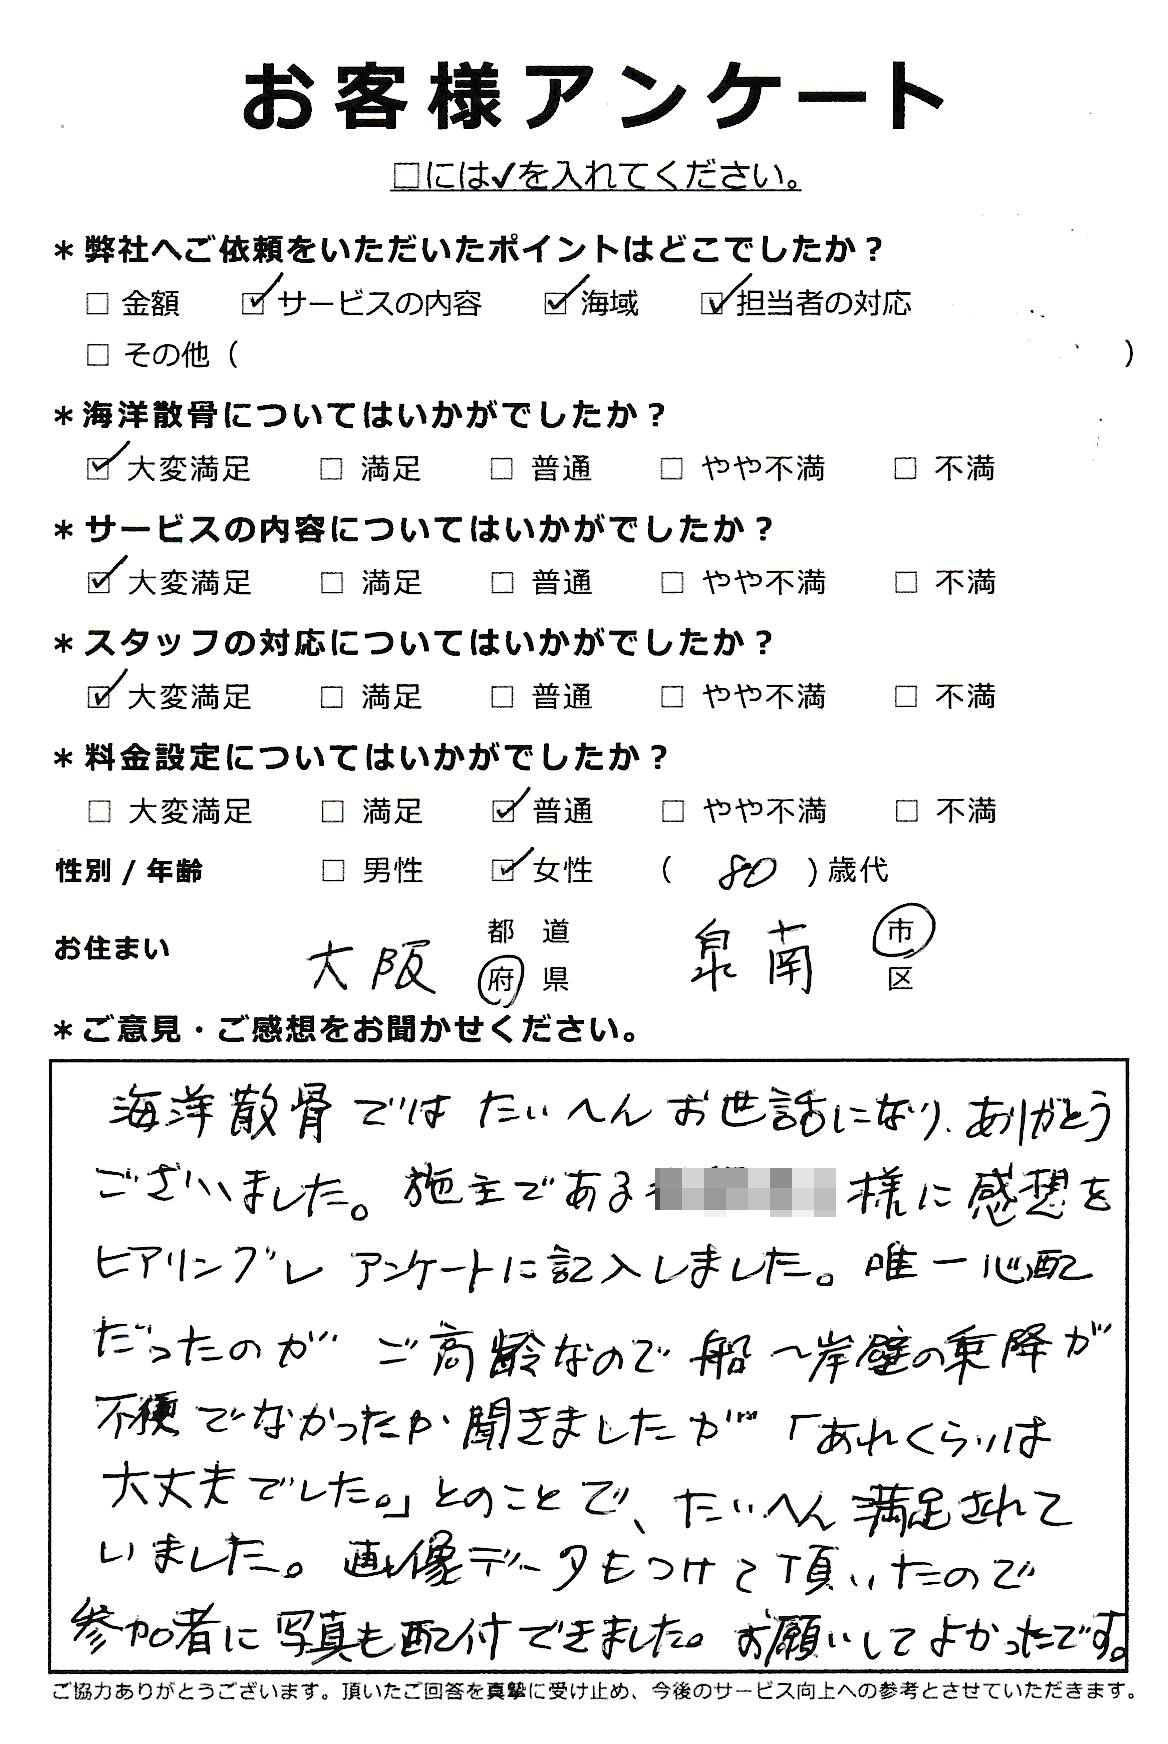 お客様アンケート
□には✓を入れてください。
＊弊社へご依頼をいただいたポイントはどこでしたか？
□ 金額 ☑ サービスの内容 ☑ 海域 ☑ 担当者の対応
□ その他（ ）
＊海洋散骨についてはいかがでしたか？
☑ 大変満足 □ 満足 □ 普通 □ やや不満 □ 不満
＊サービスの内容についてはいかがでしたか？
☑ 大変満足 □ 満足 □ 普通 □ やや不満 □ 不満
＊スタッフの対応についてはいかがでしたか？
☑ 大変満足 □ 満足 □ 普通 □ やや不満 □ 不満
＊料金設定についてはいかがでしたか？
□ 大変満足 □ 満足 ☑ 普通 □ やや不満 □ 不満
性別 / 年齢 □ 男性 ☑ 女性 （ 80 ）歳代
お住まい 大阪 都 道 府 県 泉南 市 区
＊ご意見・ご感想をお聞かせください。
海洋散骨ではたいへんお世話になり、ありがとう
ございました。施主である 様に感想を
ヒアリングしアンケートに記入しました。唯一心配
だったのがご高齢なので船〜岸壁の乗降が
不便でなかったか聞きましたが「あれくらいは
大丈夫でした。」とのことで、たいへん満足されて
いました。画像データもつけて頂いたので
参加者に写真も配付できました。お願いしてよかったです。
ご協力ありがとうございます。頂いたご回答を真摯に受け止め、今後のサービス向上への参考とさせていただきます。